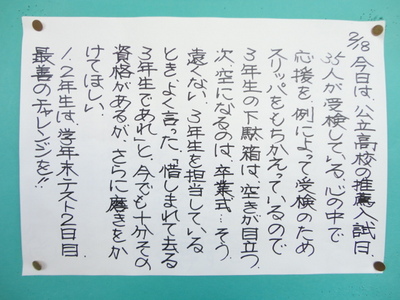 2/18 今日は、公立高校の推薦入試日、
35人が受検している。心の中で
応援を、例によって受検のため
スリッパをもちかえっているので
3年生の下駄箱は、空きが目立つ。
次、空になるのは、卒業式…そう
遠くない。3年生を担当している
とき、よく言った、「惜しまれて去る
3年生であれ」と、今でも十分その
資格があるが、さらに磨きをか
けてほしい。
1、2年生は、学年末テスト2日目、
最善のチャレンジを!!